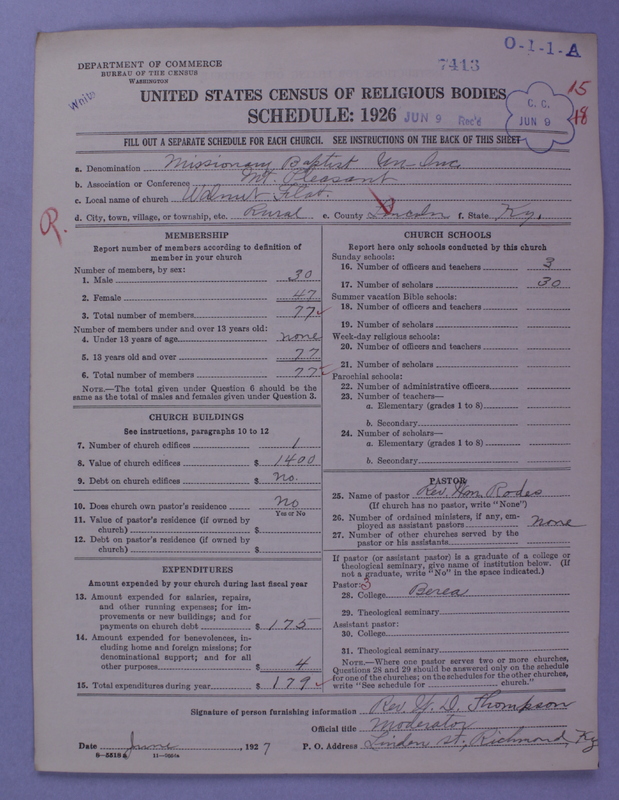 O-1-1-A
DEPARTMENT OF COMMERCE
BUREAU OF THE CENSUS
WASHINGTON
7413
White
UNITED STATES CENSUS OF RELIGIOUS BODIES
SCHEDULE: 1926 JUN 9 Rec'd
C. C.
JUN 9
15
18
FILL OUT A SEPARATE SCHEDULE FOR EACH CHURCH. SEE INSTRUCTIONS ON THE BACK OF THIS SHEET
a. Denomination Missionary Baptist Un-Inc.
b. Association or Conference Mt. Pleasant
c. Local name of church Walnut Flat.
d. City, town, village, or township, etc. Rural e. County Lincoln f. State Ky.
R.
MEMBERSHIP
Report number of members according to definition of
member in your church
Number of members, by sex:
1. Male 30
2. Female 47
3. Total number of members 77
Number of members under and over 13 years old:
4. Under 13 years of age none
5. 13 years old and over 77
6. Total number of members 77
NOTE.—The total given under Question 6 should be the
same as the total of males and females given under Question 3.
CHURCH BUILDINGS
See instructions, paragraphs 10 to 12
7. Number of church edifices 1
8. Value of church edifices $ 1400
9. Debt on church edifices $ No.
10. Does church own pastor's residence No
Yes or No
11. Value of pastor's residence (if owned by
church) $
12. Debt on pastor's residence (if owned by
church) $
EXPENDITURES
Amount expended by your church during last fiscal year
13. Amount expended for salaries, repairs,
and other running expenses; for im-
provements or new buildings; and for
payments on church debt $ 175
14. Amount expended for benevolences, in-
cluding home and foreign missions; for
denominational support; and for all
other purposes $ 4
15. Total expenditures during year $ 179
CHURCH SCHOOLS
Report here only schools conducted by this church
Sunday schools:
16. Number of officers and teachers 3
17. Number of scholars 30
Summer vacation Bible schools:
18. Number of officers and teachers
19. Number of scholars
Week-day religious schools:
20. Number of officers and teachers
21. Number of scholars
Parochial schools:
22. Number of administrative officers
23. Number of teachers—
a. Elementary (grades 1 to 8)
b. Secondary
24. Number of scholars—
a. Elementary (grades 1 to 8)
b. Secondary
PASTOR
25. Name of pastor Rev. Wm. Rodes
(If church has no pastor, write "None")
26. Number of ordained ministers, if any, em-
ployed as assistant pastors none
27. Number of other churches served by the
pastor or his assistants
If pastor (or assistant pastor) is a graduate of a college or
theological seminary, give name of institution below. (If
not a graduate, write "No" in the space indicated.)
Pastor: 3
28. College Berea
29. Theological seminary
Assistant pastor:
30. College
31. Theological seminary
NOTE.—Where one pastor serves two or more churches,
Questions 28 and 29 should be answered only on the schedule
for one of the churches; on the schedules for the other churches,
write "See schedule for church."
Signature of person furnishing information Rev. G. D. Thompson
Official title Moderator
Date June, 1927 P. O. Address Linden St., Richmond, Ky
8-5518 a 11-9684a